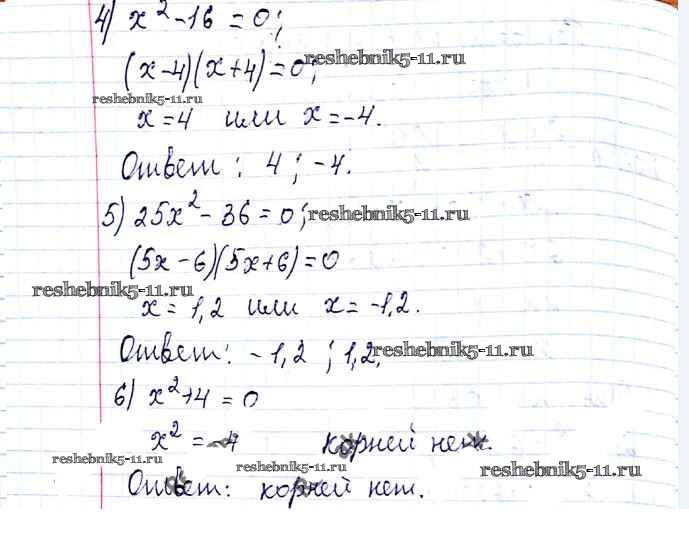 4) x² - 16 = 0;
(x-4)(x+4)=0; reshebnik5-11.ru
reshebnik5-11.ru
x = 4 или x = -4.
Ответ: 4; -4.
5) 25x² - 36 = 0; reshebnik5-11.ru
(5x - 6)(5x+6)=0
reshebnik5-11.ru
x = 1,2 или x = -1,2.
Ответ: -1,2; 1,2. reshebnik5-11.ru
6) x² + 4 = 0
x² = -4 корней нет.
reshebnik5-11.ru reshebnik5-11.ru reshebnik5-11.ru
Ответ: корней нет.